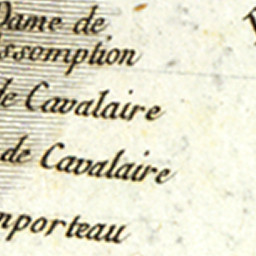 Dame de
ssomption
de Cavalaire
de Cavalaire
mporteau